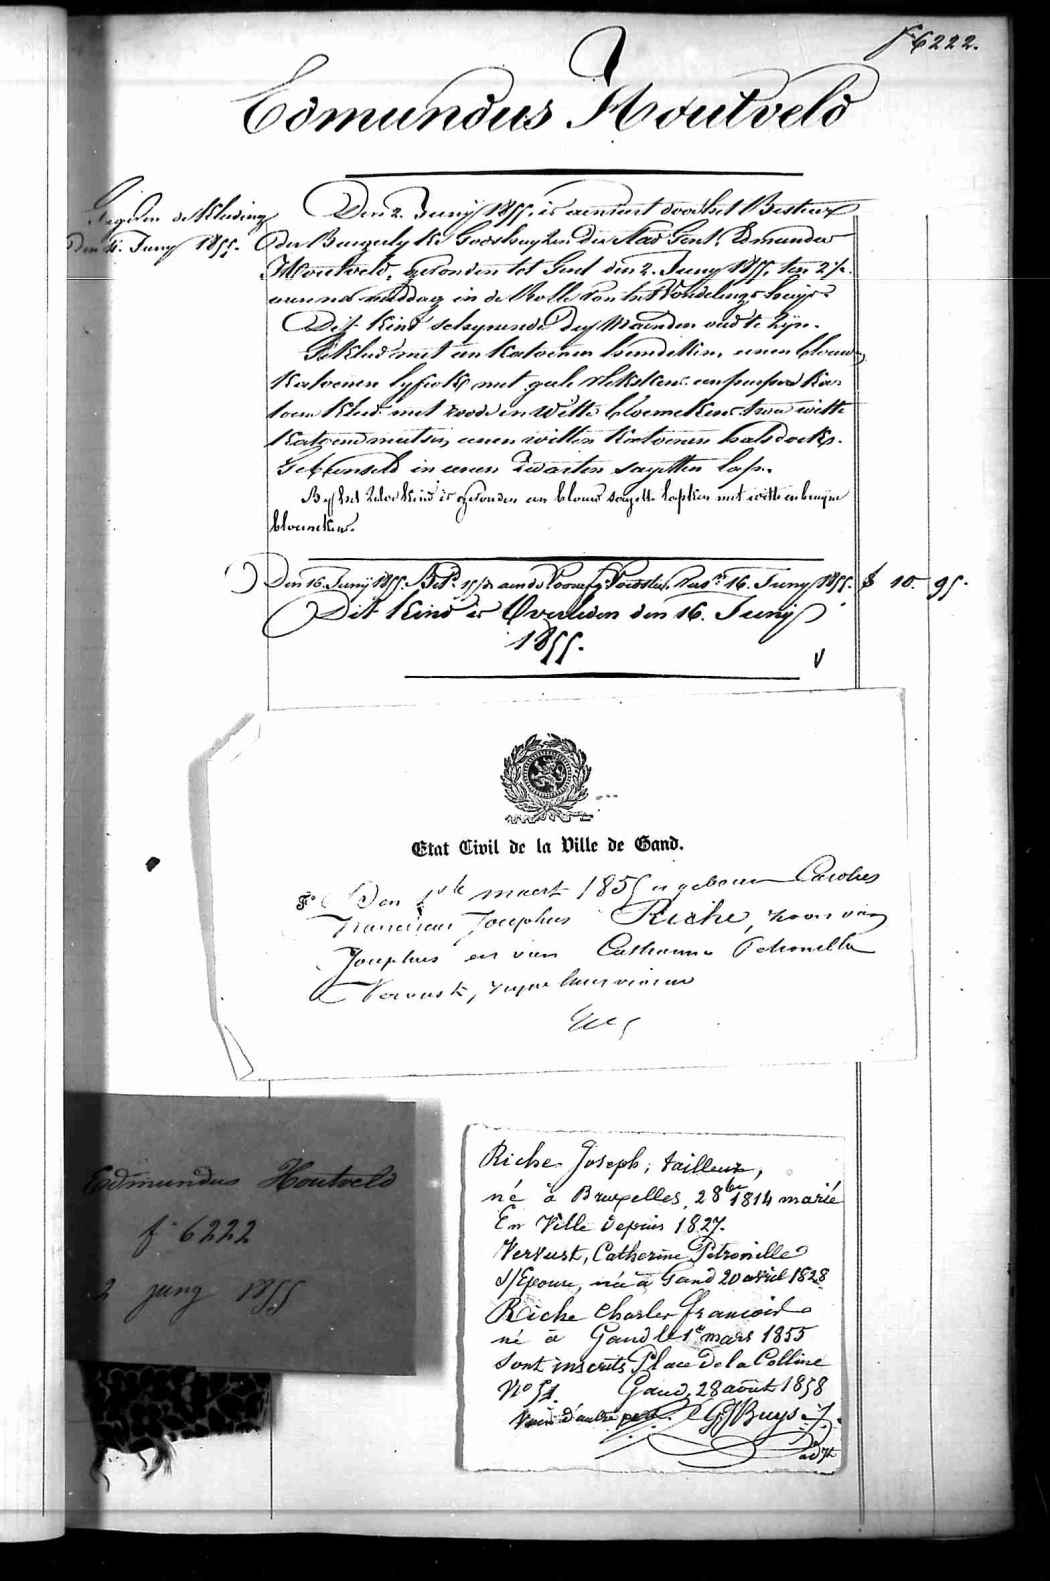 f° 6222.
Edmundus Houtveld
Gegeven de kleeding
den 4. Juny 1855.
Den 2. Junij 1855. is aenveert door het Bestier
der Burgerlyke Godshuyzen der stad Gent, Edmundus
Houtveld, gevonden tot Gent den 2. Juny 1855, ten 2½
uren na middag in de Rolle van het Vondelings huys.
Dit kind schynende dry Maenden oud te zyn.
Gekleed met een katoenen hemdeken, eenen blauwen
katoenen lyfrok met geele vlekskens een purper ka-
toen kleed met roode en witte bloemekens twee witte
katoene mutsen, eenen witten katoenen halsdoek,
Gebunseld in eenen zwarten sayetten lap.
By het zelve kind is gevonden een blauw sayette lapken met witte en bruyne
bloemekens.
Den 16. Junij 1855. Bet. aen de Voedster, 16. Juny 1855. f 10. 95.
Dit kind is Overleden den 16. Junij
1855.
V
Etat Civil de la Ville de Gand.
Den 1ste maert 1855 is geboren Carolus
Franciscus Josephus Riche, zoon van
Josephus en van Catharina Petronella
Vervust, zyne huisvrouw
Edmundus Houtveld
f° 6222
2 juny 1855
Riche Joseph, tailleur,
né à Bruxelles, 28 1814 marié
En Ville depuis 1827.
Vervust, Catherine Petronille
s/Epouse, née à Gand 20 avril 1828
Riche Charles François
né à Gand le 1er mars 1855
Sont inscrits Place de la Colline
No 51. Gand, 28 août 1858
Buys